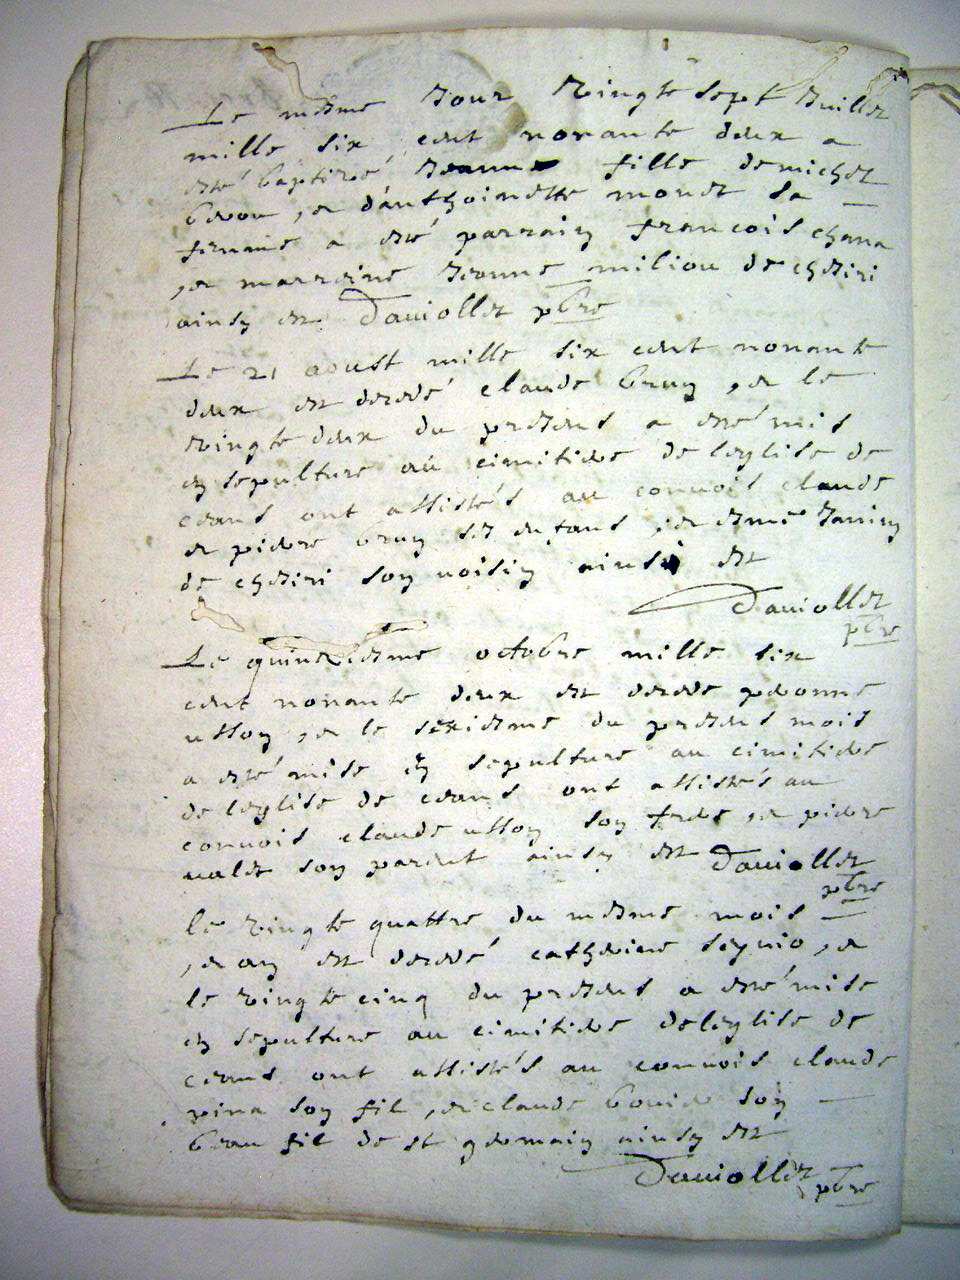 Le mesme Jour vingte sept Juillet
mille six cent nonante deux a
esté baptizé Jeanne fille de michel
, et d'anthoinette monet sa
femme a esté parrain francois chana
, et marreine Jeanne miliou de cheiri
ainsy est Daviollet pbre
Le 21 aoust mille six cent nonante
deux est decedé claude bruy , et le
vingte deux du present a esté mis
en sepulture au cimitiere de leglise de
ceans ont assistés au convois claude
et pierre bruy ses enfans , et esmé Janin
de cheiri son voisin ainsi est
Daviollet
pbre
Le quinziesme octobre mille six
cent nonante deux est decede peronne
usson , et le seziesme du present mois
a esté mise en sepulture au cimitiere
de leglise de ceans ont assistés au
convois claude usson son frere , et pierre
valet son parent ainsy est Daviollet
pbre
le vingte quattre du mesme mois
, et an est decedé catherine seynio , et
le vingte cinq du present a esté mise
en sepulture au cimitiere de leglise de
ceans ont assistés au convois claude
pina son fil , et claude bovier son
beau fil de st germain ainsy est
Daviollet pbre